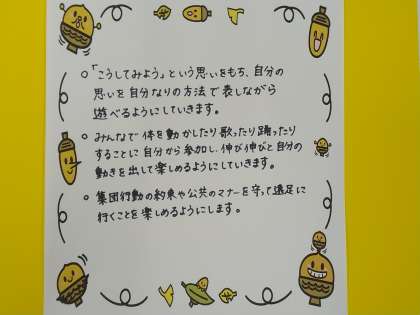 ○「こうしてみよう」という思いをもち、自分の
思いを自分なりの方法で表しながら
遊べるようにしていきます。
○ みんなで体を動かしたり歌ったり踊ったり
することに自分から参加し、伸び伸びと自分の
動きを出して楽しめるようにしていきます。
○ 集団行動の約束や公共のマナーを守って遠足に
行くことを楽しめるようにします。